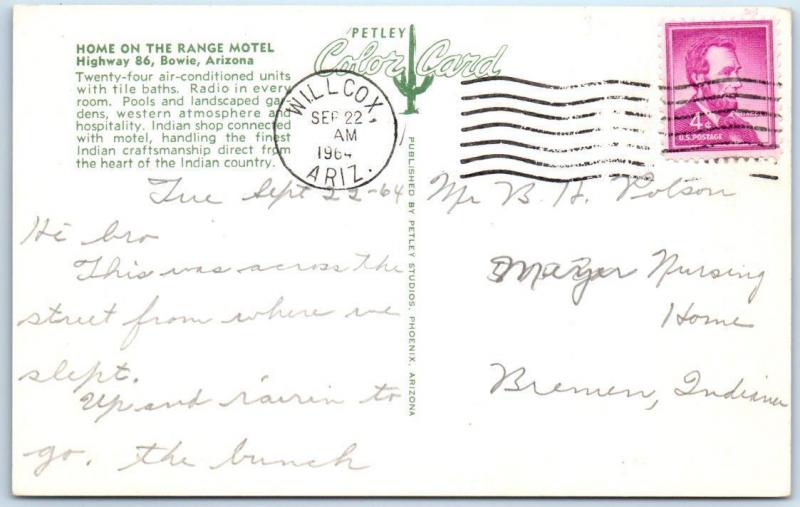 HOME ON THE RANGE MOTEL
Highway 86, Bowie, Arizona
Twenty-four air-conditioned units
with tile baths. Radio in every
room. Pools and landscaped gar-
dens, western atmosphere and
hospitality. Indian shop connected
with motel, handling the finest
Indian craftsmanship direct from
the heart of the Indian country.
PETLEY
Color Card
WILLCOX,
SEP 22
AM
1964
ARIZ.
4¢
U.S. POSTAGE
PUBLISHED BY PETLEY STUDIOS, PHOENIX, ARIZONA
Tue Sept 22-64
Hi bro
This was across the
street from where we
slept.
Up and rairin to
go. the bunch
Mr B. H. Potson
Nursing
Home
Bremen, Indiana